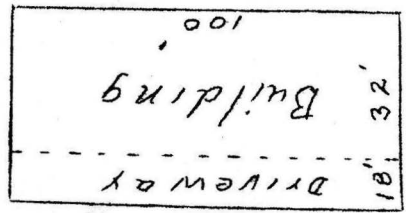 Driveway
18'
Building
32'
100'